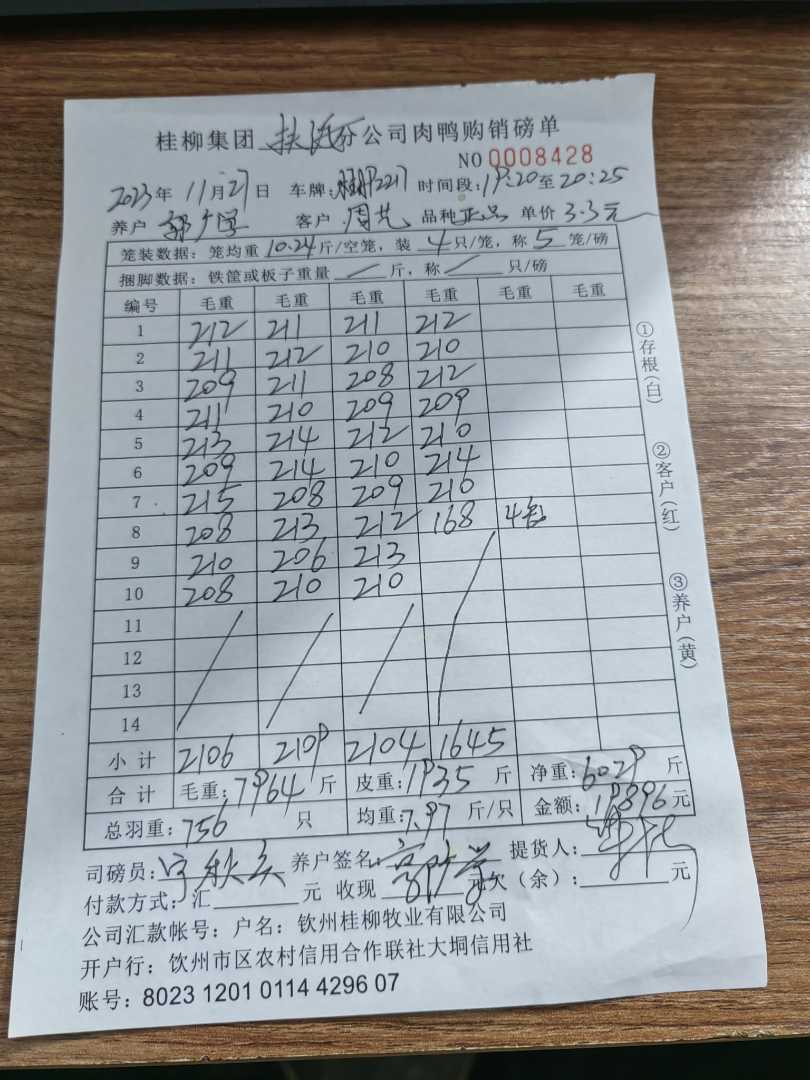 桂柳集团 扶 分公司肉鸭购销磅单
NO 0008428
2023年 11月27日 车牌: 2217 时间段:19:20至20:25
养户 郭广学 客户 周 品种 正品 单价 3.3元
笼装数据: 笼均重 10.24斤/空笼, 装 4只/笼, 称 5 笼/磅
捆脚数据: 铁筐或板子重量 / 斤, 称 / 只/磅
编号 毛重 毛重 毛重 毛重 毛重 毛重
1 212 211 211 212
2 211 212 210 210
3 209 211 208 212
4 211 210 209 209
5 213 214 212 210
6 209 214 210 214
7 215 208 209 210
8 208 213 212 168 4笼
9 210 206 213
10 208 210 210
11
12
13
14
小计 2106 2109 2104 1645
合计 毛重: 7964 斤 皮重: 1935 斤 净重: 6029 斤
总羽重: 756 只 均重: 7.97 斤/只 金额: 19896元
司磅员: 养户签名: 提货人:
付款方式: 汇 元 收现 元欠(余): 元
公司汇款帐号: 户名: 钦州桂柳牧业有限公司
开户行: 钦州市区农村信用合作联社大垌信用社
账号: 8023 1201 0114 4296 07
①存根(白)
②客户(红)
③养户(黄)